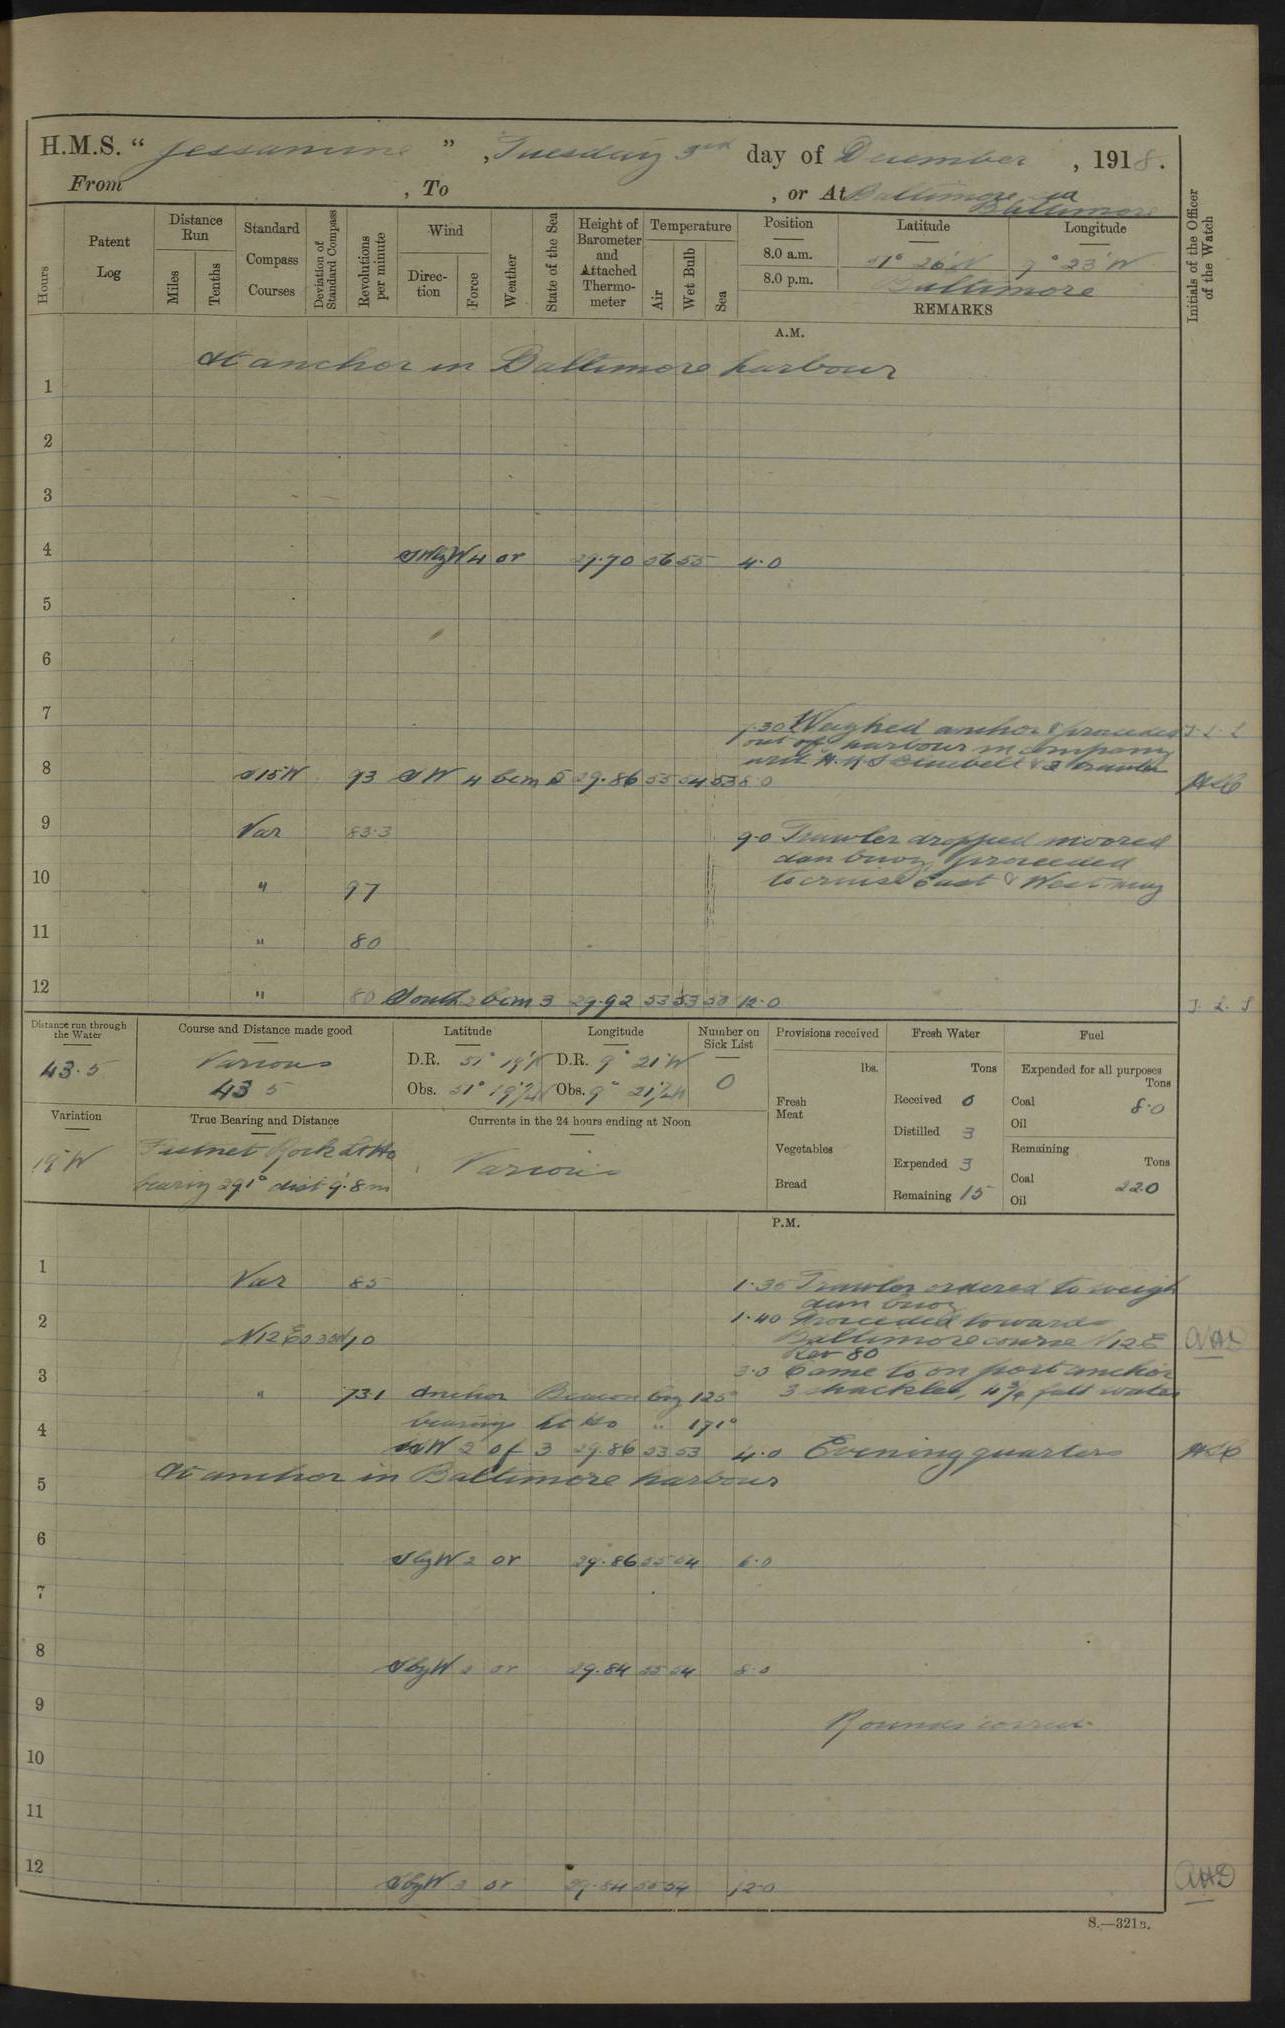 H.M.S. "Jessamine", Tuesday 3rd day of December, 1918.
From , To , or At Baltimore, sea
Baltimore
Hours
Patent Log
Distance Run
Miles
Tenths
Standard Compass Courses
Deviation of Standard Compass
Revolutions per minute
Wind
Direction
Force
Weather
State of the Sea
Height of Barometer and Attached Thermometer
Temperature
Air
Wet Bulb
Sea
Position Latitude Longitude
8.0 a.m. 51° 26' N 9° 23' W
8.0 p.m. Baltimore
REMARKS
Initials of the Officer of the Watch
A.M.
At anchor in Baltimore harbour
1
2
3
4 SWbyW 4 or 29.70 56 55 4.0
5
6
7
7.30 Weighed anchor & proceeded J.L.S
out of harbour in company
with H.M.S Bluebell & 2 trawler
8 S15W 93 SW 4 bcm 5 29.86 55 54 53 8.0
9 Var 83.3 9.0 Trawler dropped moored
dan buoy, proceeded
10 " 97 to cruise East & West
11 " 80
12 " 80 South 2 bcm 3 29.92 53 53 50 12.0 J.L.S
Distance run through the Water
43.5
Course and Distance made good
Various
43 5
Latitude
D.R. 51° 19' N
Obs. 51° 19½'
Longitude
D.R. 9° 21' W
Obs. 9° 21½'
Number on Sick List
0
Provisions received
lbs.
Fresh Meat
Vegetables
Bread
Fresh Water
Tons
Received 0
Distilled 3
Expended 3
Remaining 15
Fuel
Expended for all purposes
Tons
Coal 8.0
Oil
Remaining
Tons
Coal 220
Oil
Variation
19°W
True Bearing and Distance
Fastnet Rock Lt Ho
bearing 291° dist 9.8 m
Currents in the 24 hours ending at Noon
Various
P.M.
1 Var 85 1.35 Trawler ordered to weigh
dan buoy
2 N12E 1.40 Proceeded towards
Baltimore course N12E
Rev 80
3 3.0 Came to on port anchor
" 73.1 Anchor Beacon brg 125° 3 shackles, 4¾ fath water
bearing Lt Ho " 171°
4 2 of 3 29.86 53 53 4.0 Evening quarters
At anchor in Baltimore harbour
5
6 SbyW 2 or 29.86 55 54 6.0
7
8 SbyW 2 or 29.84 55 54 8.0
9
Rounds correct
10
11
12 SbyW 2 or 29.84 55 54 12.0
S.—321B.